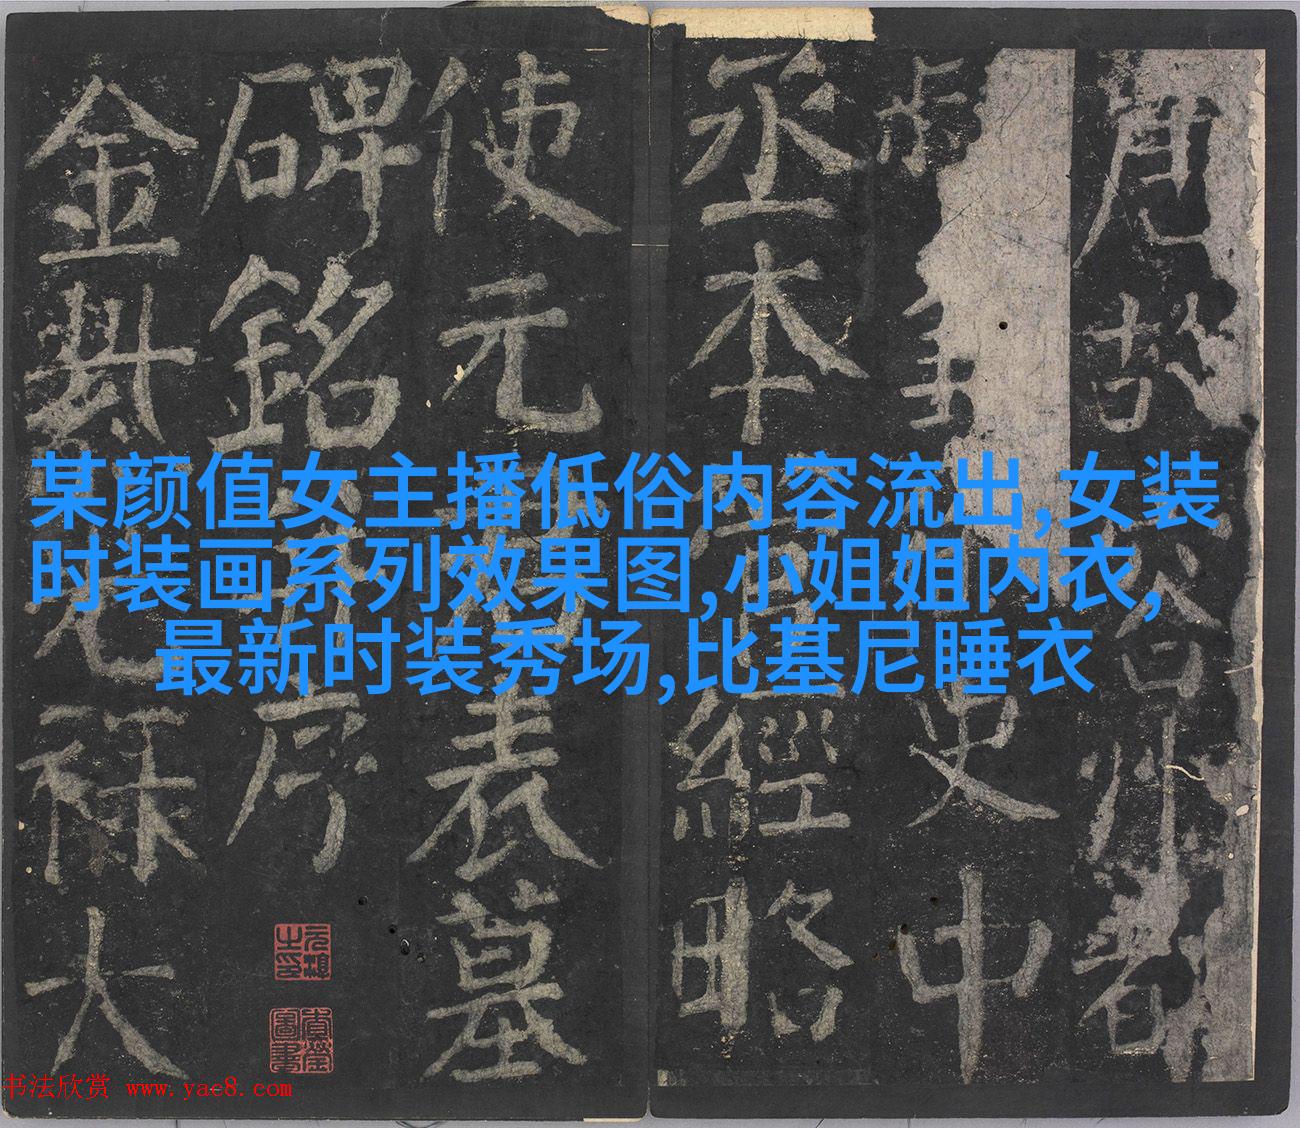 某颜值女主播低俗内容流出,女装
时装画系列效果图,小姐姐内衣,
最新时装秀场,比基尼睡衣
唐故容州都
史中
丞本經略
使元表墓
碑銘序
金光祿大
书法欣赏 www.yac8.com